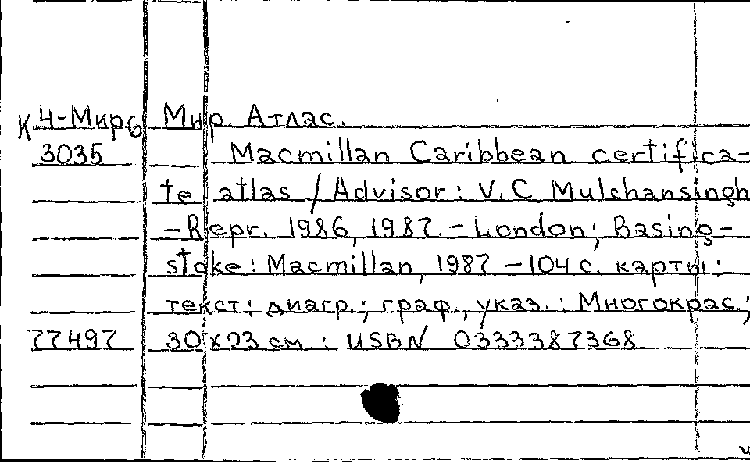 К Ч-Мир6 Мир Атлас.
3035 Macmillan Caribbean certifica-
te atlas / Advisor: V.C Mulchansingh
- Repr. 1986, 1987. - London; Basing-
stoke: Macmillan, 1987 - 104 с. карты:
текст; диагр.; граф., указ.: Многокрас;
77497 30x23 см : USBN 0333387368